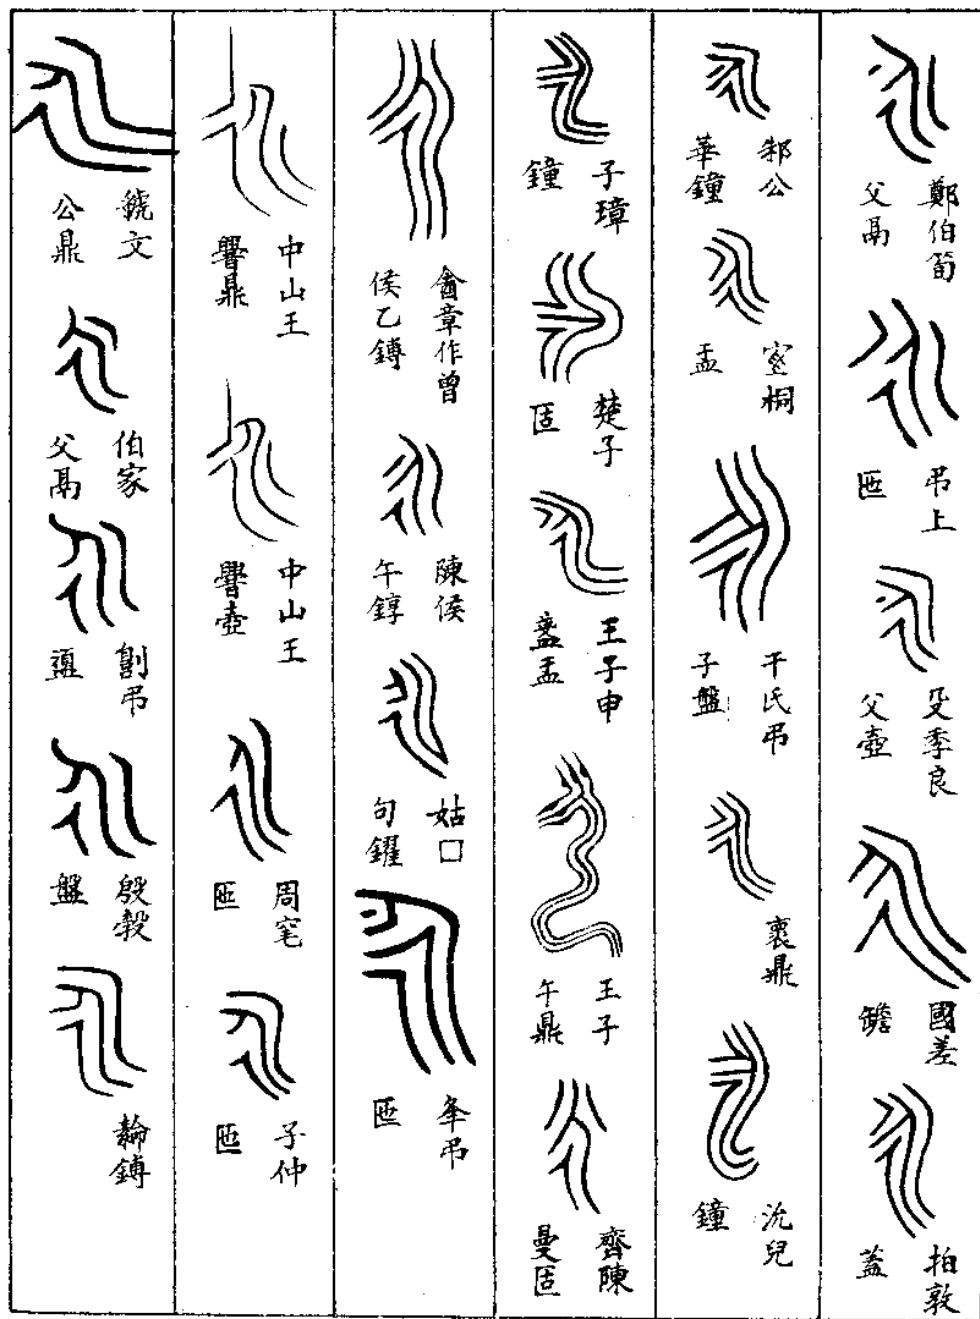 鄭伯筍
父鬲
弔上
匜
殳季良
父壺
國差
𦉜
拍敦
蓋
邾公
華鐘
桐
盂
干氏弔
子盤
褱鼎
沇兒
鐘
子璋
鐘
楚子
王子申
盞盂
王子
午鼎
齊陳
曼
酓章作曾
侯乙鎛
陳侯
午錞
姑□
句鑃
夆弔
匜
中山王
鼎
中山王
壺
周
匜
子仲
匜
虢文
公鼎
伯家
父鬲
弔
殷穀
盤
鎛